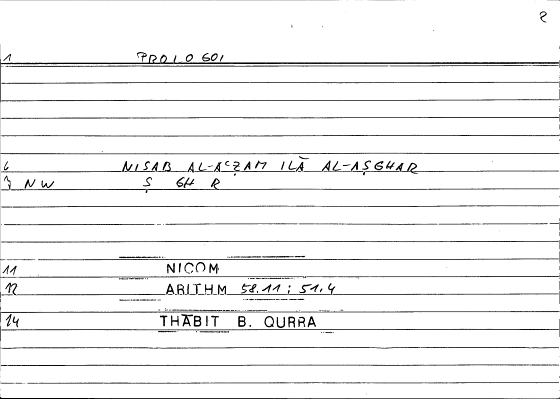 2
1 PROLOGOI
6 NISAB AL-AʿẒAM ILĀ AL-AṢGHAR
7 NW Ṣ GH R
11 NICOM
12 ARITHM 58.11; 51.4
14 THĀBIT B. QURRA